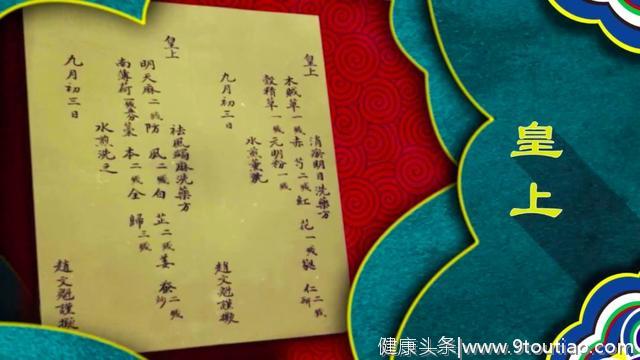 皇上
消瘀明目洗藥方
木賊草一錢赤芍二錢紅花一錢蕤仁二錢研
穀精草一錢元明粉一錢
水煎薰洗
九月初三日
趙文魁謹擬
皇上
祛風蠲麻洗藥方
明天麻二錢防風二錢白芷二錢姜蚕二錢炒
南薄荷一錢五分藁本二錢全歸三錢
水煎洗之
九月初三日
趙文魁謹擬
皇上
健康头条|www.9toutiao.com